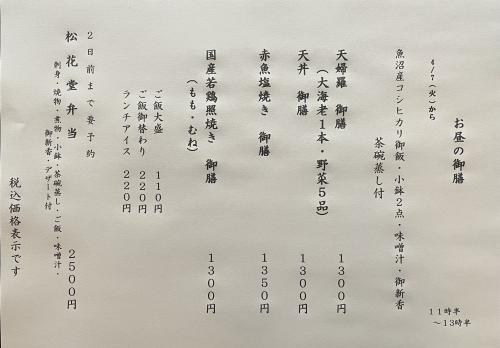 4/7（火）から
お昼の御膳
11時半
～13時半
魚沼産コシヒカリ御飯・小鉢2点・味噌汁・御新香
茶碗蒸し付
天婦羅 御膳 1300円
（大海老1本・野菜5品）
天丼 御膳 1300円
赤魚塩焼き 御膳 1350円
国産若鶏照焼き 御膳 1300円
（もも・むね）
ご飯大盛 110円
ご飯御替わり 220円
ランチアイス 220円
2日前まで要予約
松花堂弁当 2500円
刺身・焼物・煮物・小鉢・茶碗蒸し・ご飯・味噌汁・
御新香・デザート付
税込価格表示です